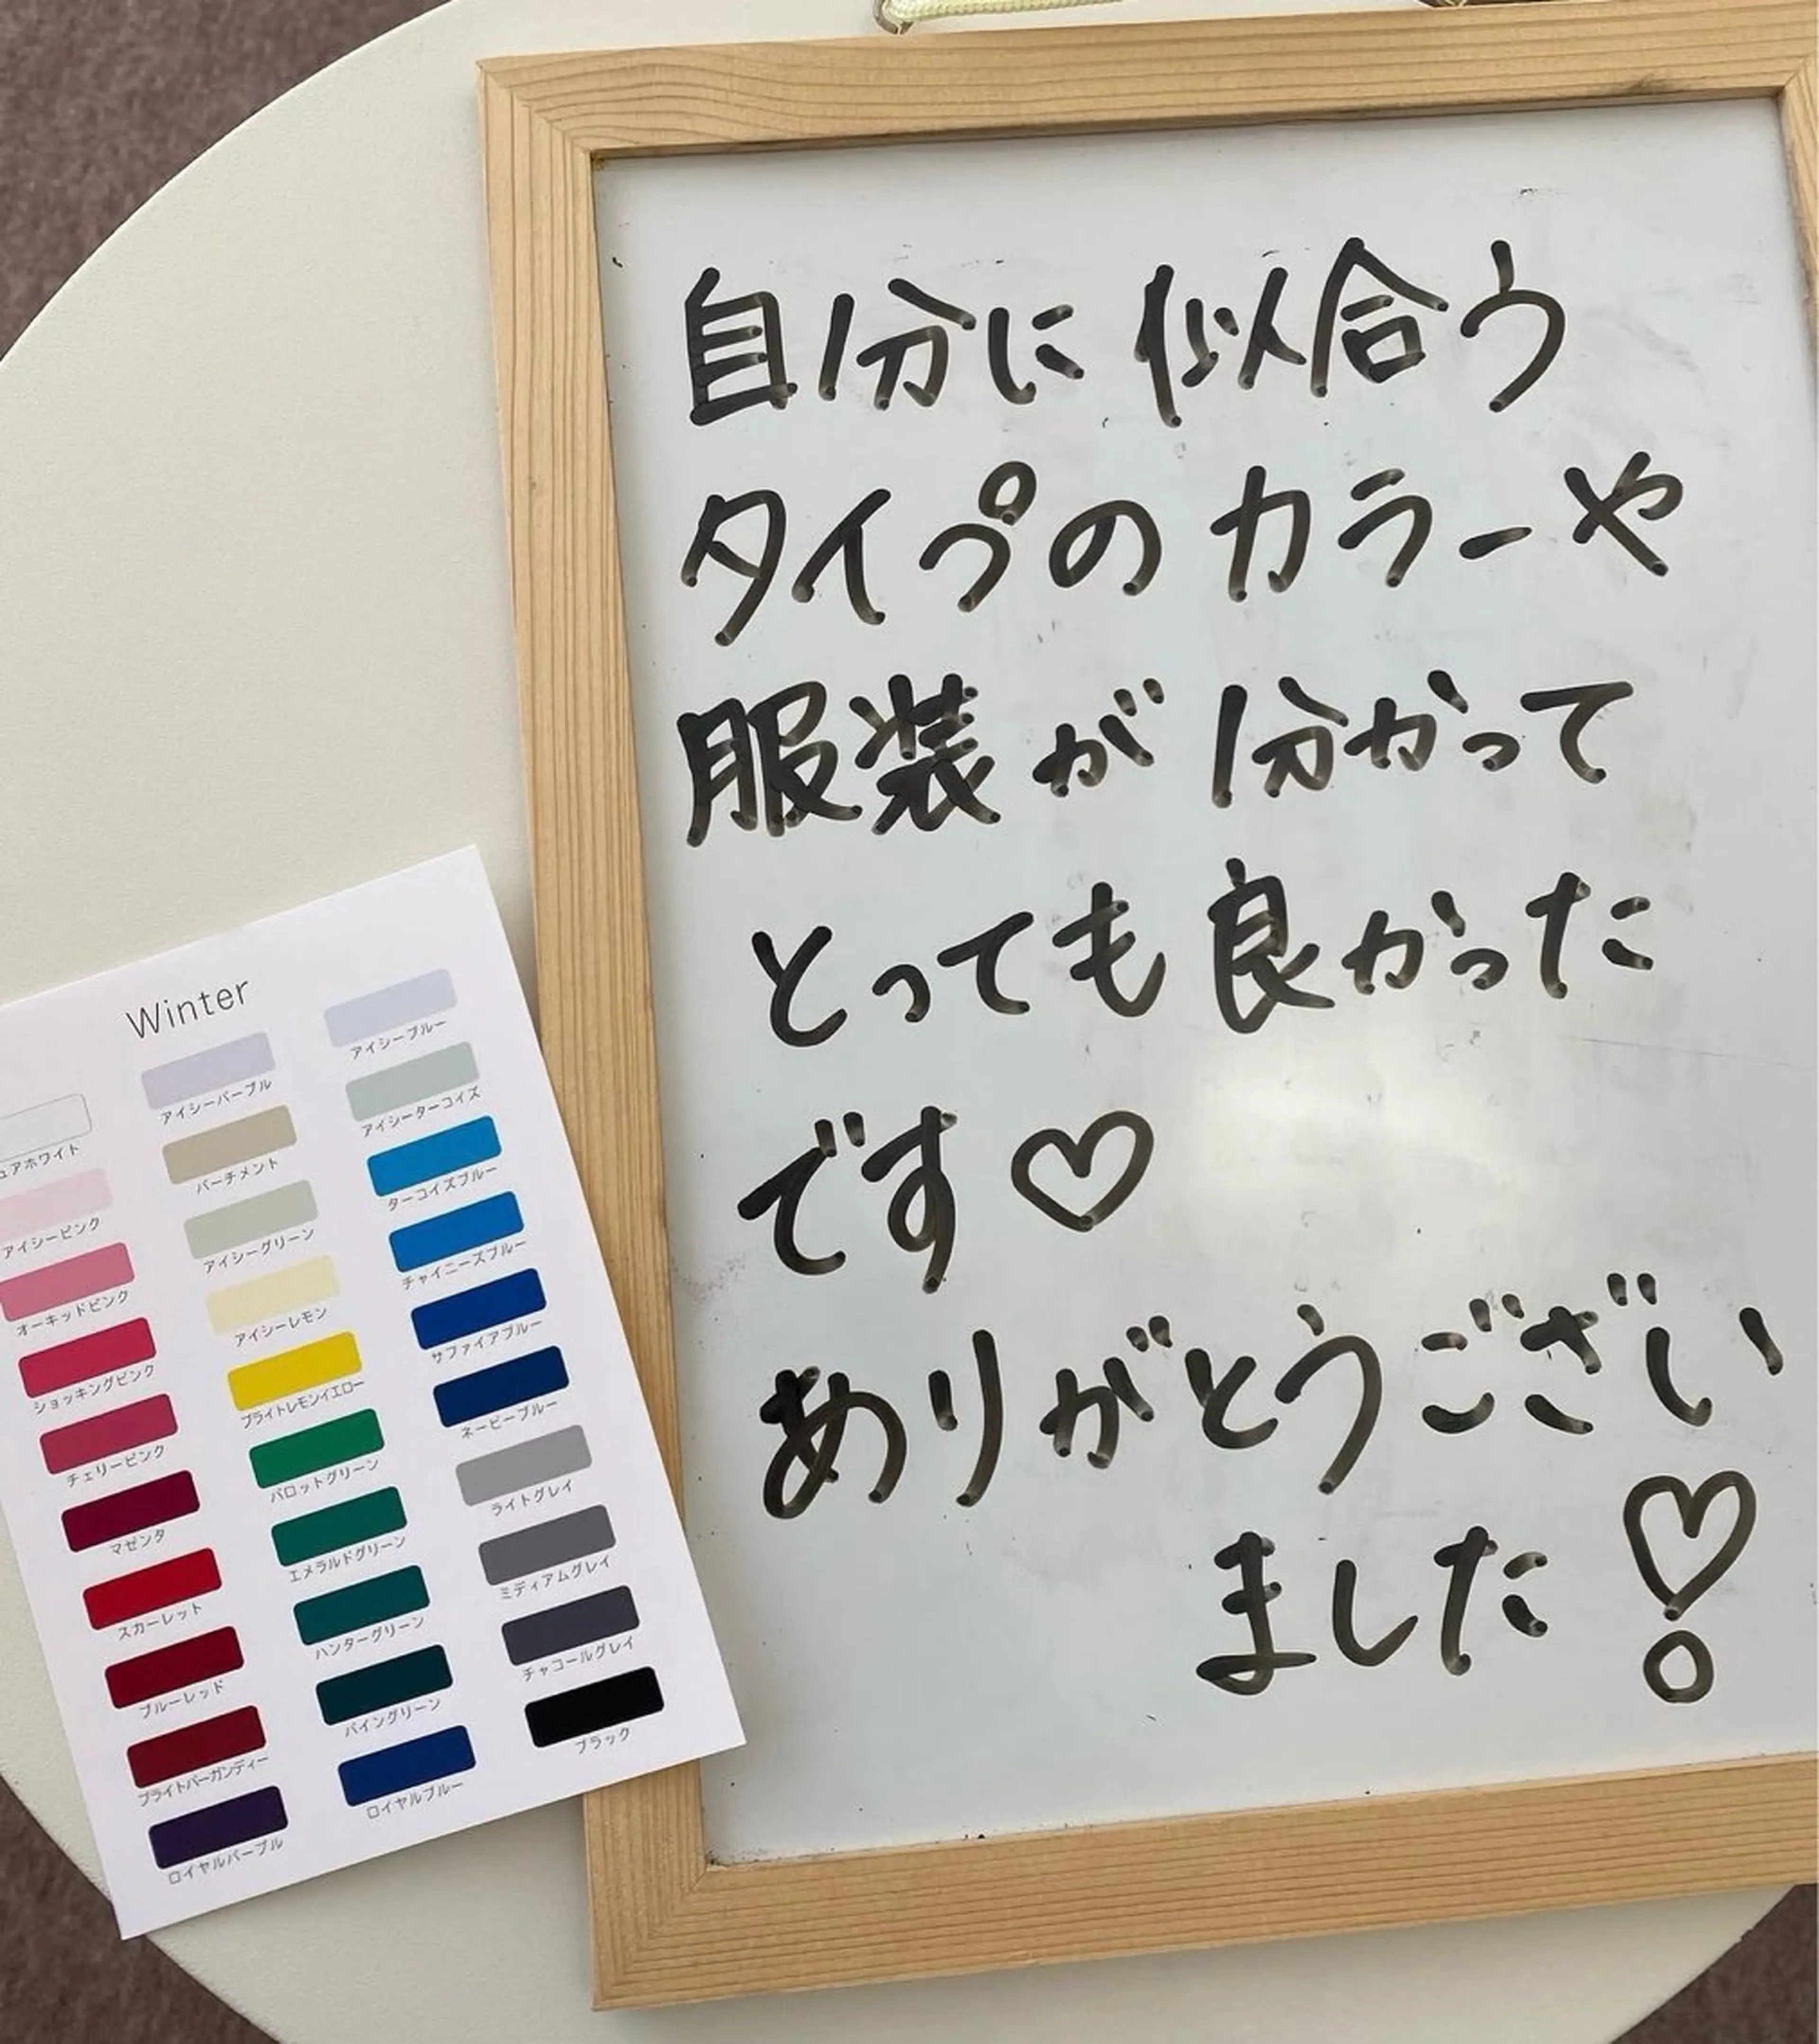 自分に似合う
タイプのカラーや
服装が分かって
とっても良かった
です♡
ありがとうござい
ました♡
Winter
アイシーブルー
アイシーパープル
アイシーターコイズ
ュアホワイト
パーチメント
ターコイズブルー
アイシーピンク
アイシーグリーン
チャイニーズブルー
オーキッドピンク
アイシーレモン
サファイアブルー
ショッキングピンク
ブライトレモンイエロー
ネービーブルー
チェリーピンク
パロットグリーン
ライトグレイ
マゼンタ
エメラルドグリーン
ミディアムグレイ
スカーレット
ハンターグリーン
チャコールグレイ
ブルーレッド
パイングリーン
ブラック
ブライトバーガンディー
ロイヤルブルー
ロイヤルパープル